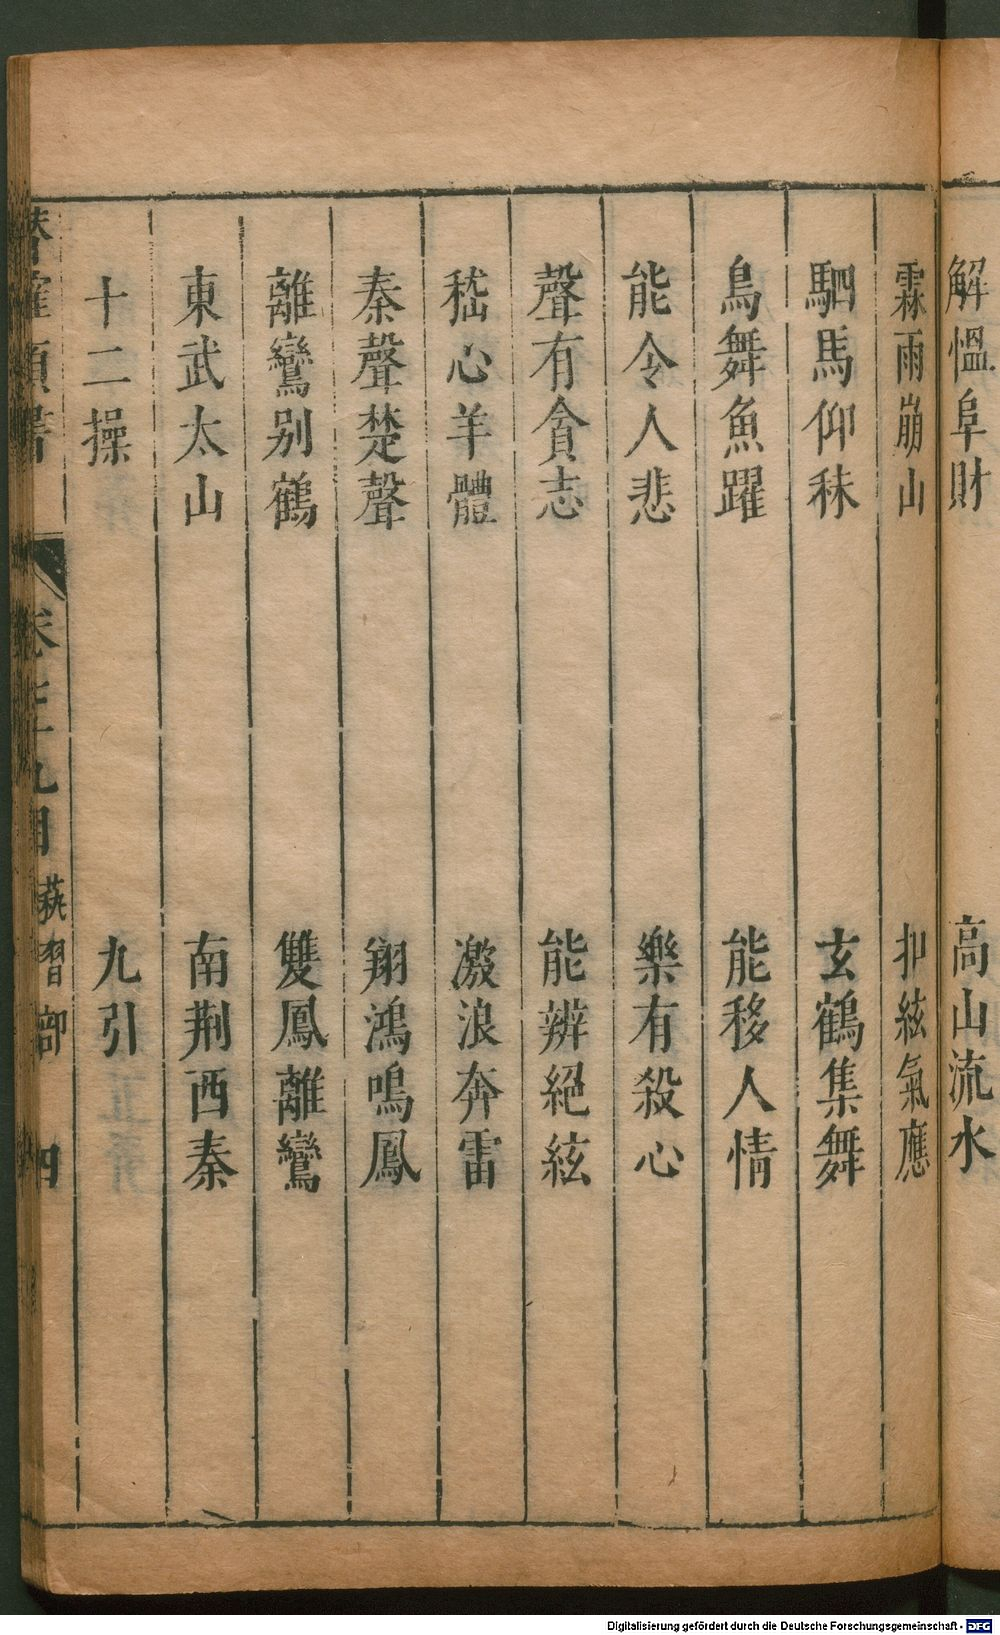 解慍阜財　高山流水
霖雨崩山　扣絃氣應
駟馬仰秣　玄鶴集舞
鳥舞魚躍　能移人情
能令人悲　樂有殺心
聲有貪志　能辨絕絃
嵇心羊體　激浪奔雷
秦聲楚聲　翔鴻鳴鳳
離鸞别鶴　雙鳳離鸞
東武太山　南荆西秦
十二操　九引
卷三九目 藝習部 四
Digitalisierung gefördert durch die Deutsche Forschungsgemeinschaft - DFG